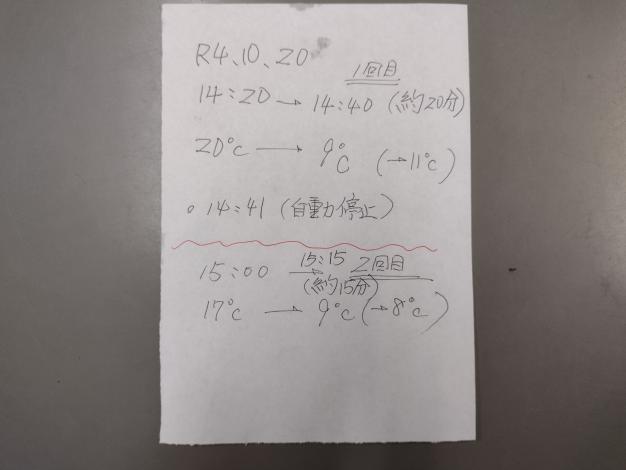 R4、10、20
1回目
14:20 → 14:40 (約20分)
20℃ → 9℃ (→11℃)
○ 14:41 (自動停止)
15:00 → 15:15 2回目
(約15分)
17℃ → 9℃ (→8℃)